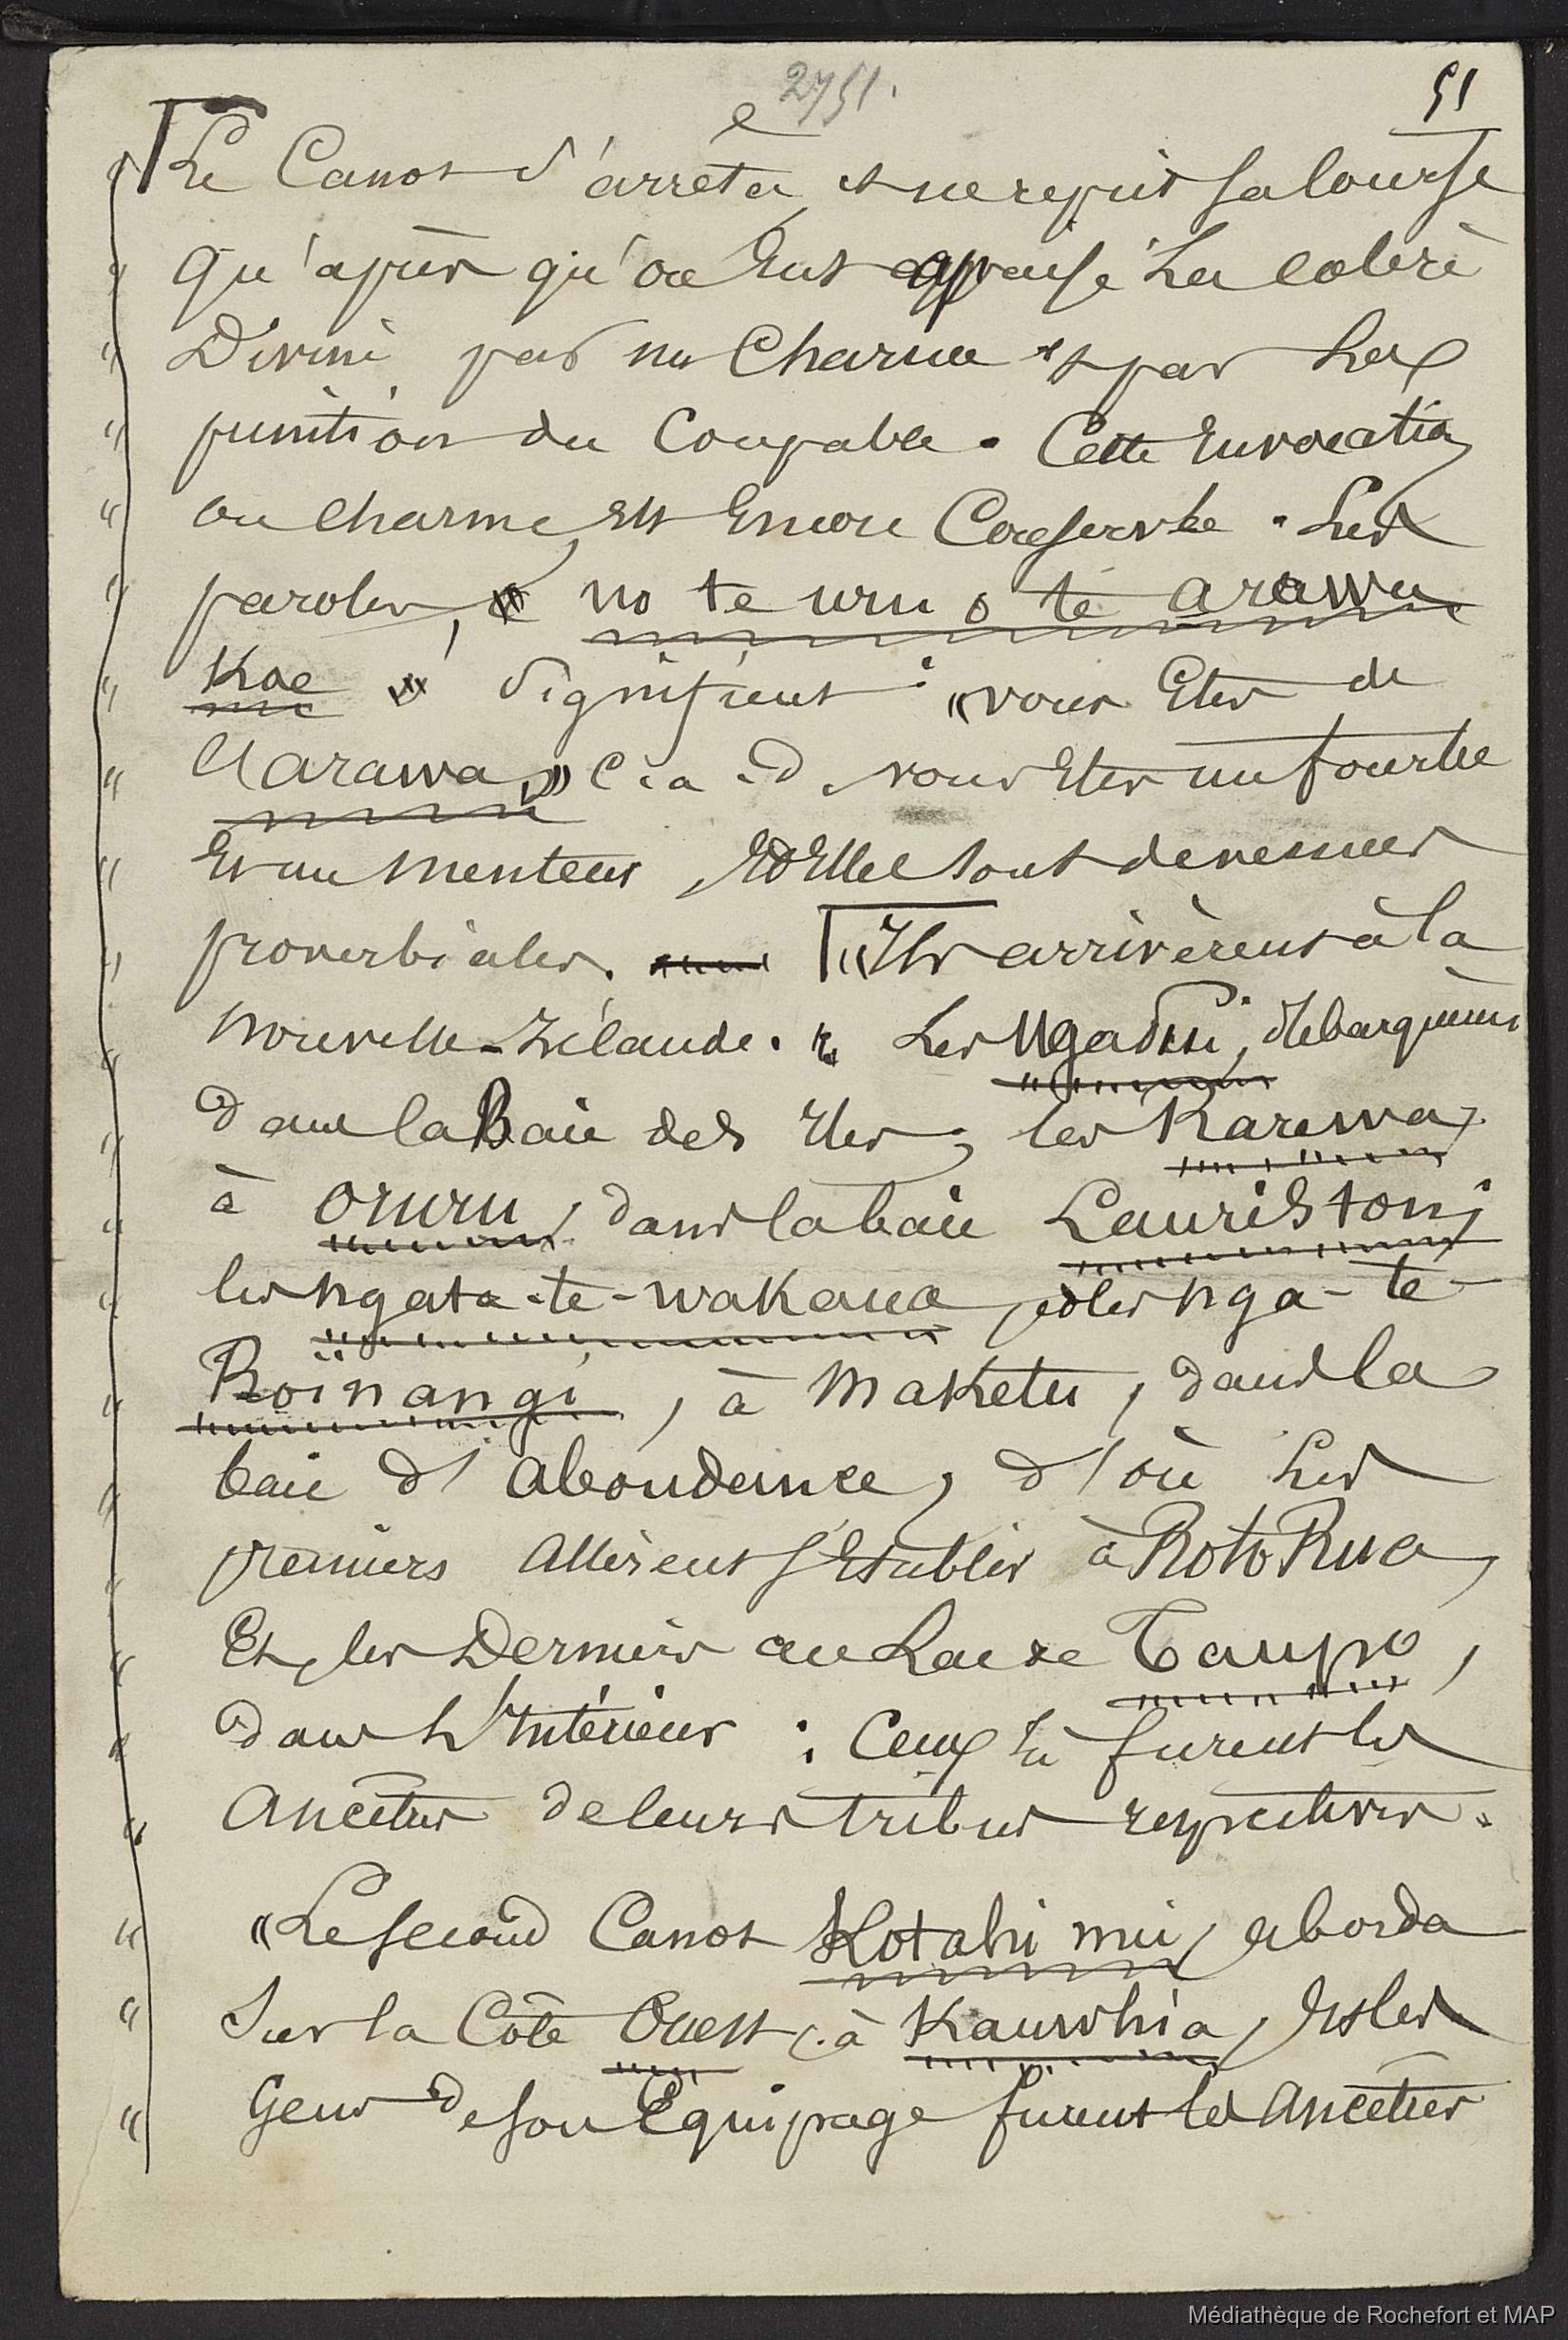 2751.
51
Le Canot s'arrêta, et ne reprit sa course
qu'après qu'on eut appaisé la colère
Divine par un Charme et par la
punition du Coupable. Cette invocation
ou charme, est encore Conservée. Les
paroles, no te uru o te arawa
Koe signifient : "vous êtes de
l'arawa," c. a. d. vous êtes un fourbe
et un menteur, et elles sont devenues
proverbiales. "Ils arrivèrent à la
Nouvelle-Zélande. Les Ngadini, débarquèrent
dans la Baie des Iles ; les Rarewa,
à oruru, dans la baie Lauriston ;
les ngata-te-wakaua, et les nga-te-
Roinangi, à Maketu, dans la
baie d'abondance, d'où les
premiers allèrent s'établir à RotoRua,
Et les Derniers au Lac de Taupo,
dans l'intérieur : Ceux-là furent les
Ancêtres de leurs tribus respectives.
"Le second Canot Kotahi nui, aborda
Sur la Côte Ouest, à Kauwhia, et les
Gens de son Equipage furent les Ancêtres
Médiathèque de Rochefort et MAP